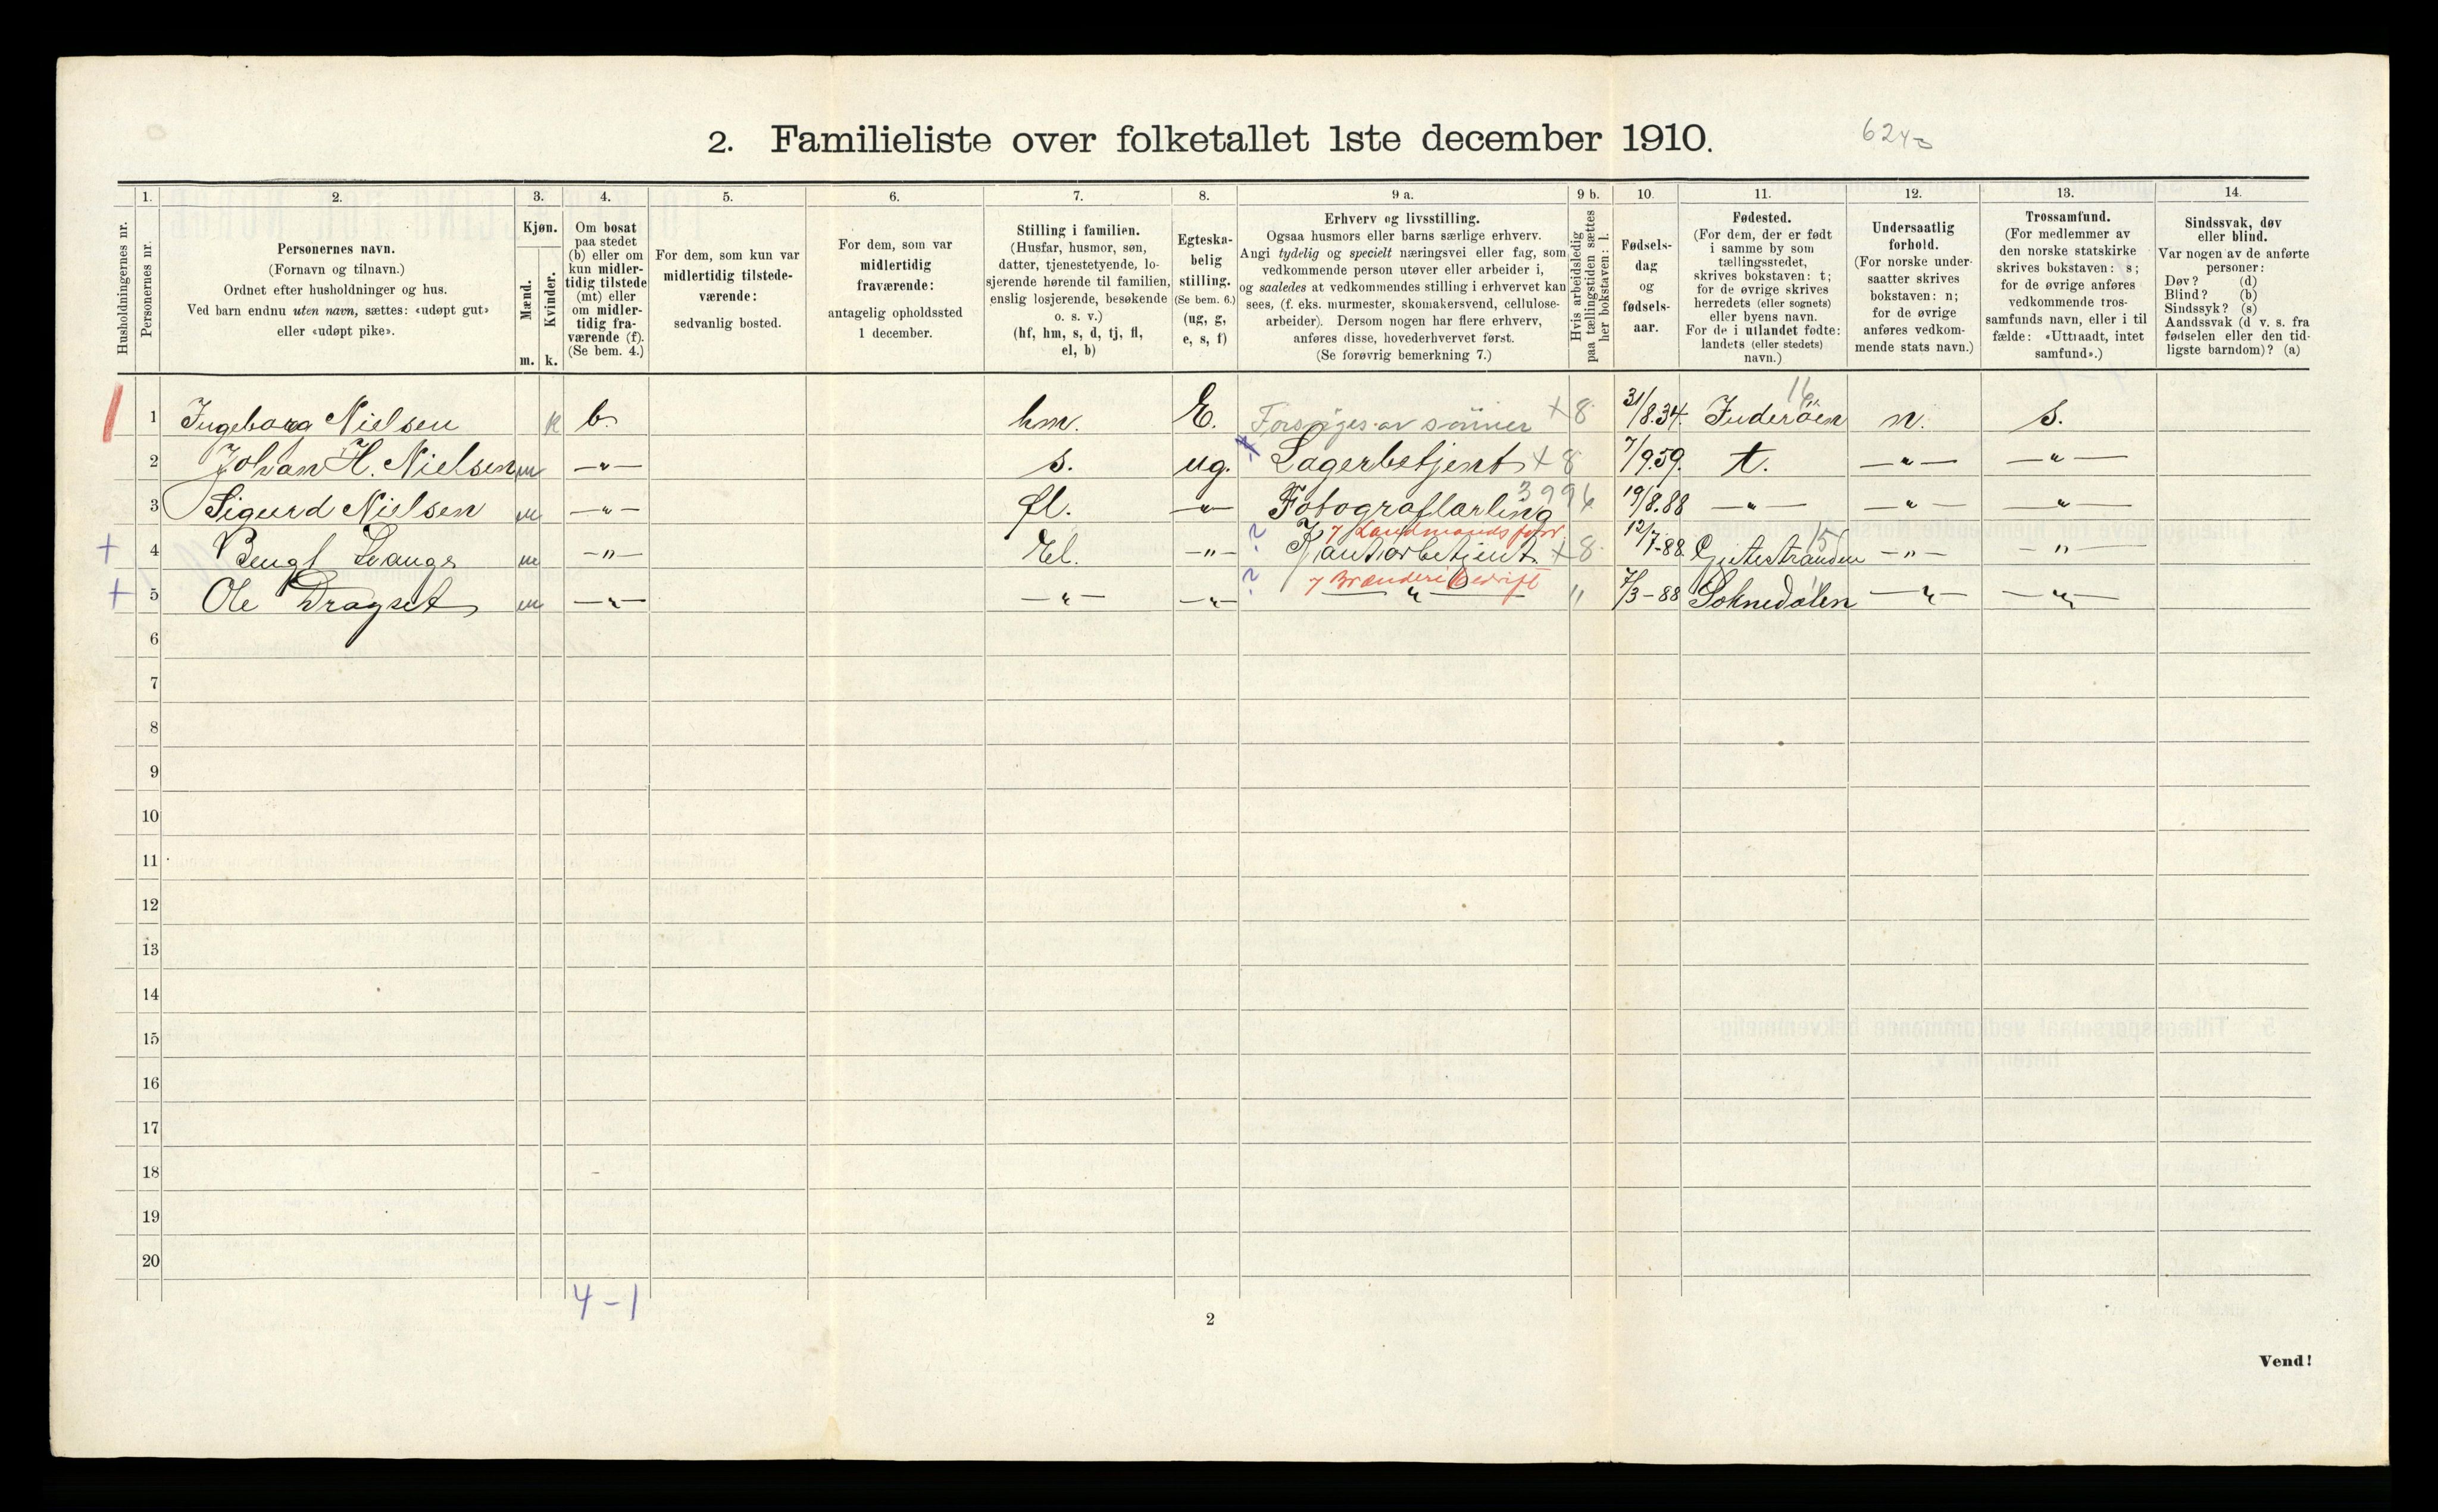 2. Familieliste over folketallet 1ste december 1910.
6240
Husholdningernes nr.
1.
Personernes nr.
2.
Personernes navn.
(Fornavn og tilnavn.)
Ordnet efter husholdninger og hus.
Ved barn endnu uten navn, sættes: «udøpt gut»
eller «udøpt pike».
3.
Kjøn.
Mænd.
Kvinder.
m. k.
4.
Om bosat
paa stedet
(b) eller om
kun midler-
tidig tilstede
(mt) eller
om midler-
tidig fra-
værende (f).
(Se bem. 4.)
5.
For dem, som kun var
midlertidig tilstede-
værende:
sedvanlig bosted.
6.
For dem, som var
midlertidig
fraværende:
antagelig opholdssted
1 december.
7.
Stilling i familien.
(Husfar, husmor, søn,
datter, tjenestetyende, lo-
sjerende hørende til familien,
enslig losjerende, besøkende
o. s. v.)
(hf, hm, s, d, tj, fl,
el, b)
8.
Egteska-
belig
stilling.
(Se bem. 6.)
(ug, g,
e, s, f)
9 a.
Erhverv og livsstilling.
Ogsaa husmors eller barns særlige erhverv.
Angi tydelig og specielt næringsvei eller fag, som
vedkommende person utøver eller arbeider i,
og saaledes at vedkommendes stilling i erhvervet kan
sees, (f. eks. murmester, skomakersvend, cellulose-
arbeider). Dersom nogen har flere erhverv,
anføres disse, hovederhvervet først.
(Se forøvrig bemerkning 7.)
9 b.
Hvis arbeidsledig
paa tællingstiden sættes
her bokstaven: l.
10.
Fødsels-
dag
og
fødsels-
aar.
11.
Fødested.
(For dem, der er født
i samme by som
tællingsstedet,
skrives bokstaven: t;
for de øvrige skrives
herredets (eller sognets)
eller byens navn.
For de i utlandet fødte:
landets (eller stedets)
navn.)
12.
Undersaatlig
forhold.
(For norske under-
saatter skrives
bokstaven: n;
for de øvrige
anføres vedkom-
mende stats navn.)
13.
Trossamfund.
(For medlemmer av
den norske statskirke
skrives bokstaven: s;
for de øvrige anføres
vedkommende tros-
samfunds navn, eller i til
fælde: «Uttraadt, intet
samfund».)
14.
Sindssvak, døv
eller blind.
Var nogen av de anførte
personer:
Døv? (d)
Blind? (b)
Sindssyk? (s)
Aandssvak (d v. s. fra
fødselen eller den tid-
ligste barndom)? (a)
16
1 Ingeborg Nielsen k b. hm. E. Forsørges av sönner +8 31/8.34. Inderöen n. s.
2 Johan H. Nielsen m —"— s. ug. Lagerbetjent +8 7/9.59. t. —"— —"—
3 Sigurd Nielsen m —"— fl. —"— Fotograflærling 3996 19/8.88 —"— —"— —"—
? 7 Landmands forr. 15
+ 4 Bengt m —"— El. —"— Kontorbetjent +8 12/7-88 —"— —"—
? 7 Brænderi bedrift
+ 5 Ole Dragset m —"— —"— —"— —"— " 7/3-88 Soknedalen —"— —"—
6
7
8
9
10
11
12
13
14
15
16
17
18
19
20
4-1
2
Vend!